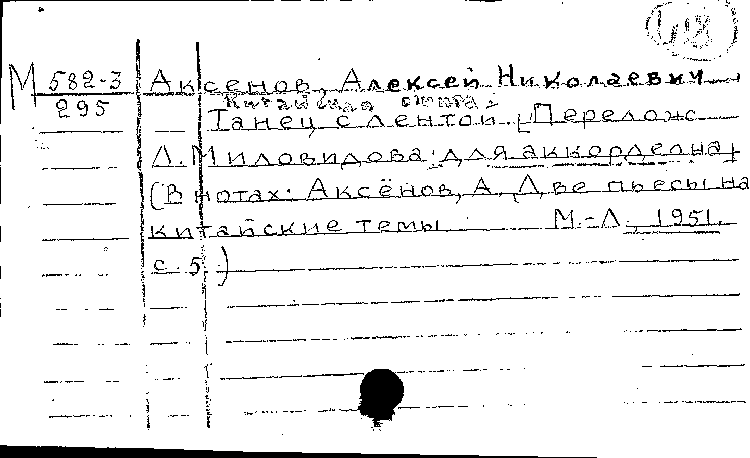 48
М 582-3 Аксенов, Алексей Николаевич
295 Китайская
Танец с лентой. [Перелож
Л. Миловидова для аккордеона]
(В нотах: Аксёнов, А. Две пьесы на
китайские темы М.-Л., 1951.
с. 5)